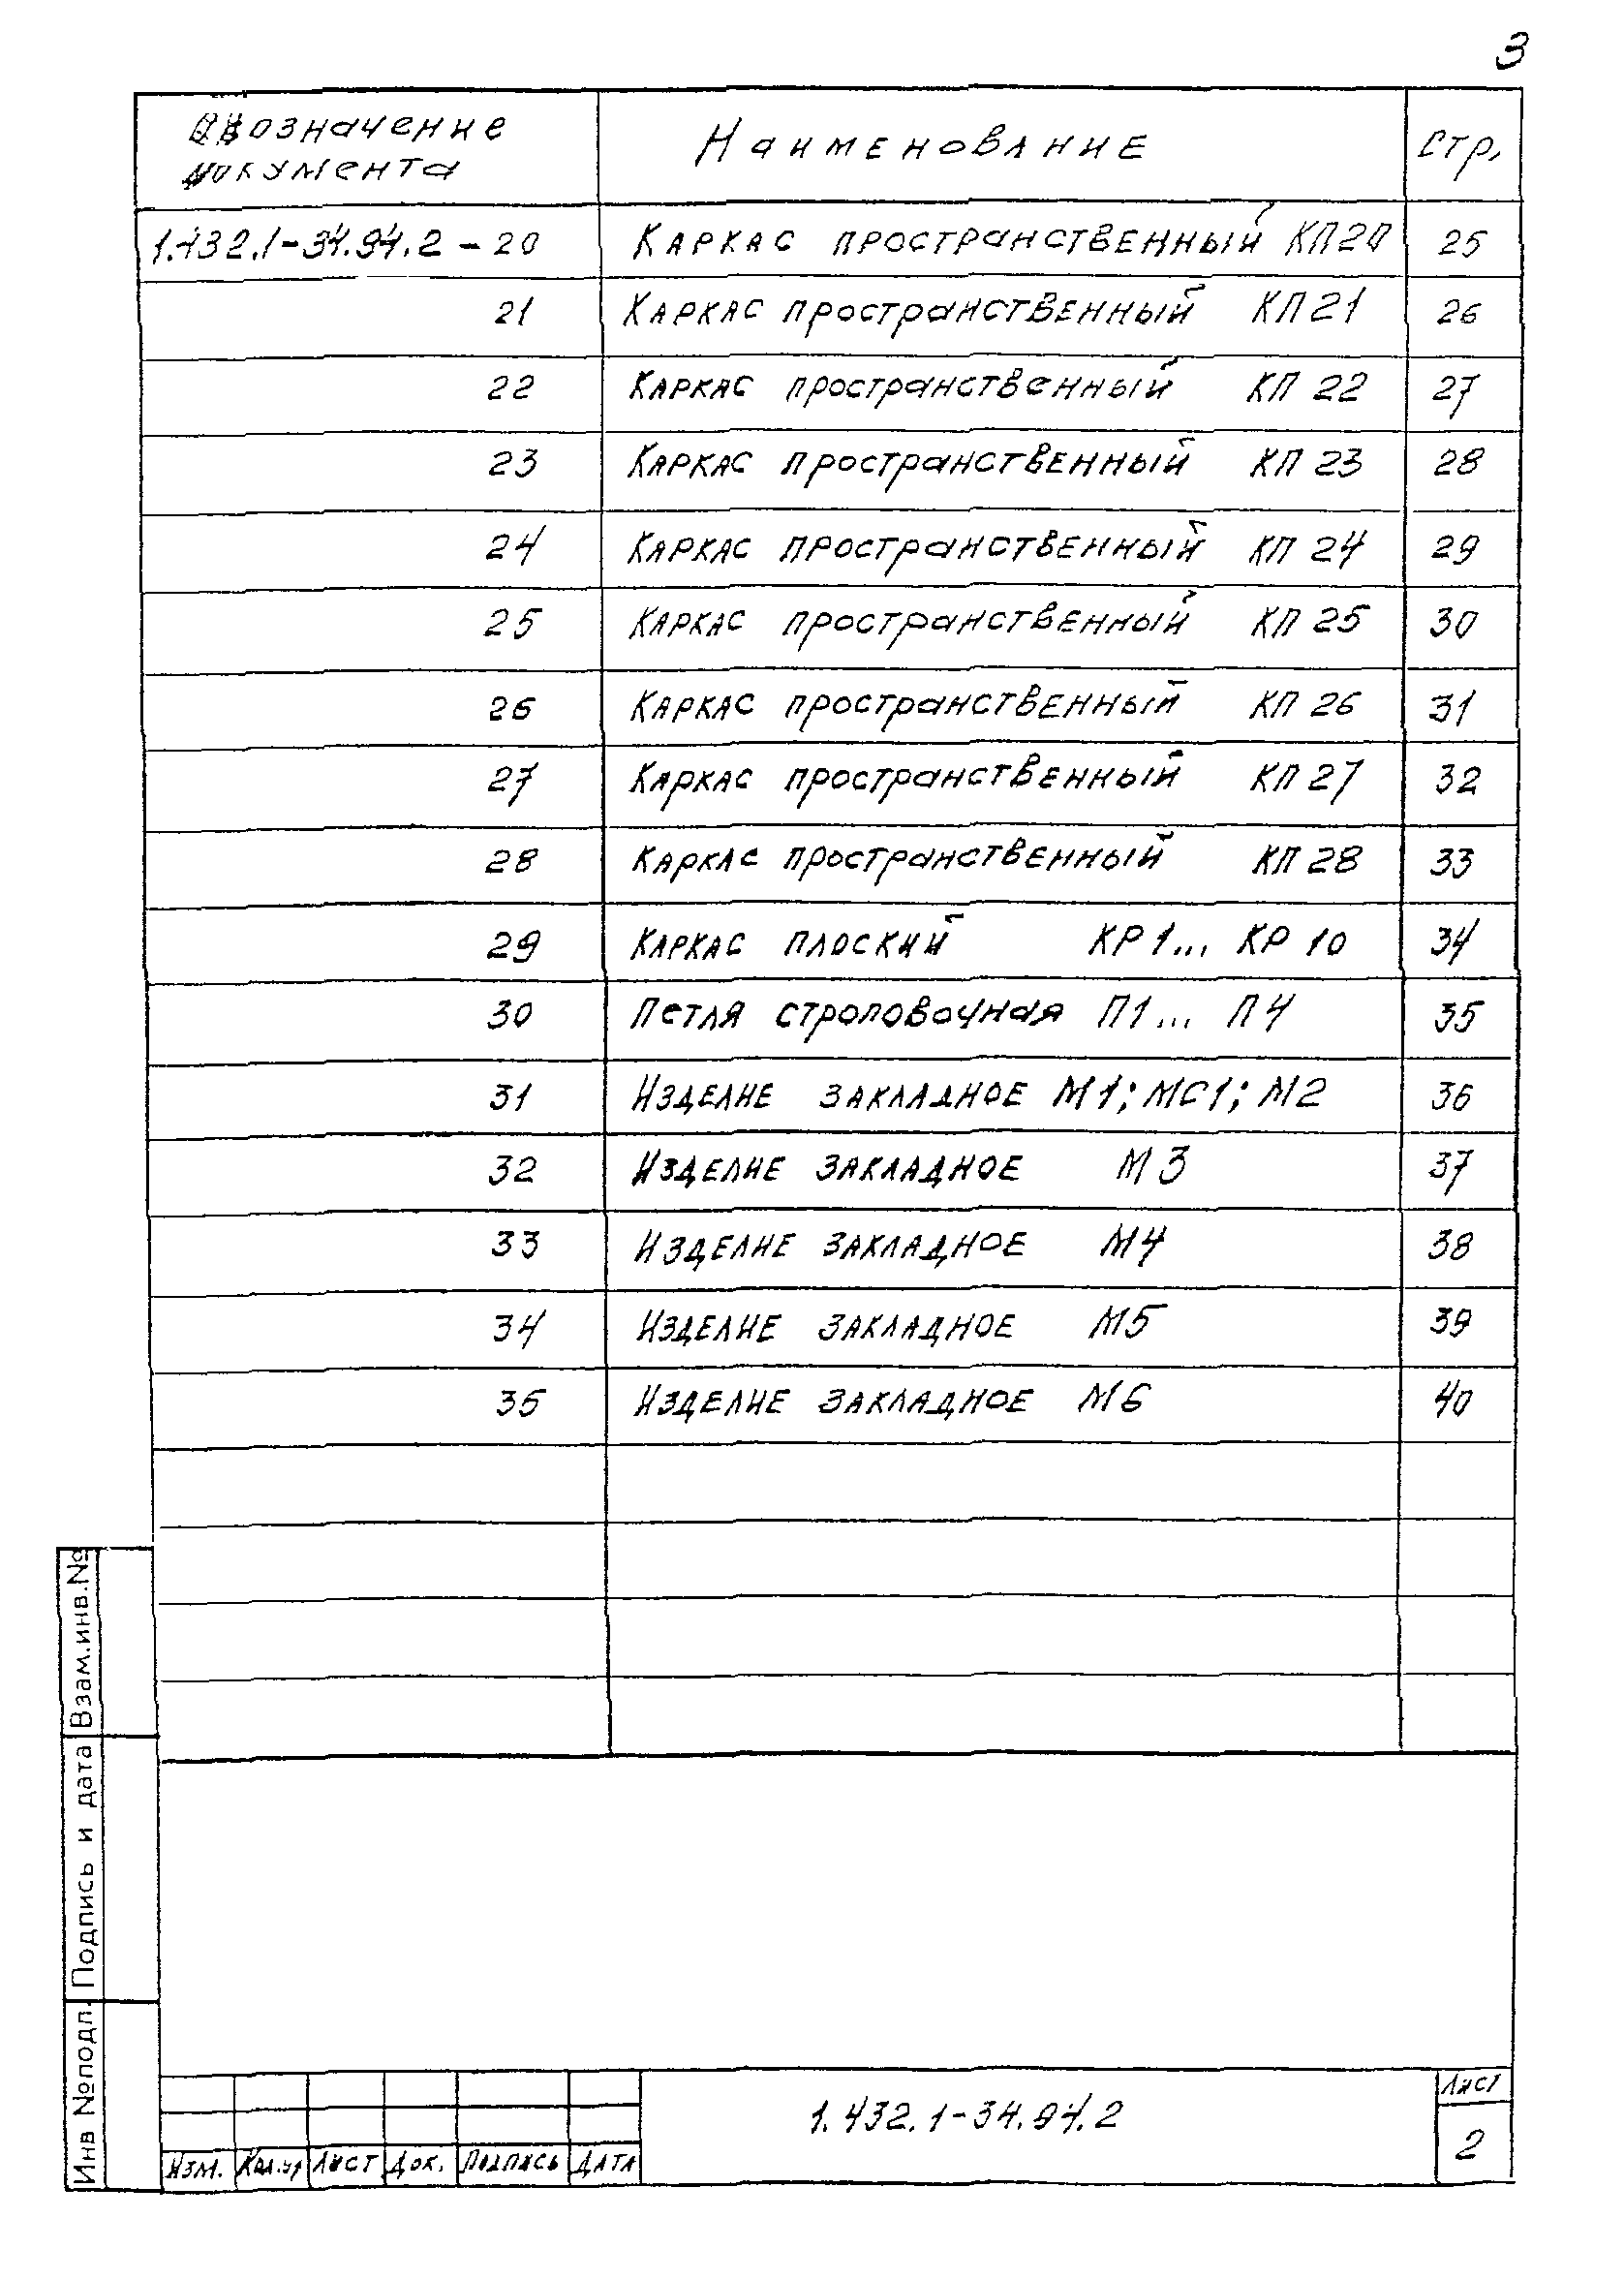 3
Обозначение документа Наименование Стр.
1.432.1-34.94.2 - 20 Каркас пространственный КП20 25
21 Каркас пространственный КП 21 26
22 Каркас пространственный КП 22 27
23 Каркас пространственный КП 23 28
24 Каркас пространственный КП 24 29
25 Каркас пространственный КП 25 30
26 Каркас пространственный КП 26 31
27 Каркас пространственный КП 27 32
28 Каркас пространственный КП 28 33
29 Каркас плоский КР 1... КР 10 34
30 Петля строповочная П1... П4 35
31 Изделие закладное М1; МС1; М2 36
32 Изделие закладное М3 37
33 Изделие закладное М4 38
34 Изделие закладное М5 39
35 Изделие закладное М6 40
Взам.инв.№
Подпись и дата
Инв №подл.
Изм. Кол.уч Лист Док. Подпись Дата
1.432.1-34.94.2
Лист
2